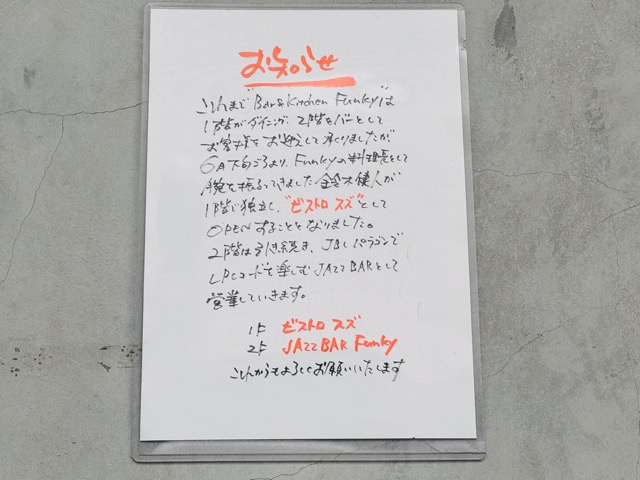 お知らせ
これまで"Bar & Kitchen Funky"は
1階がダイニング、2階をバーとして
お客様をお迎えして参りましたが
6月下旬ごろより、Funkyの料理長として
腕を振るってきました鈴木健人が
1階で独立し、"ビストロ スズ"として
OPENすることとなりました。
2階は引き続き、JBLパラゴンで
LPレコードを楽しむJAZZ BARとして
営業していきます。
1F ビストロ スズ
2F JAZZ BAR Funky
これからもよろしくお願いいたします